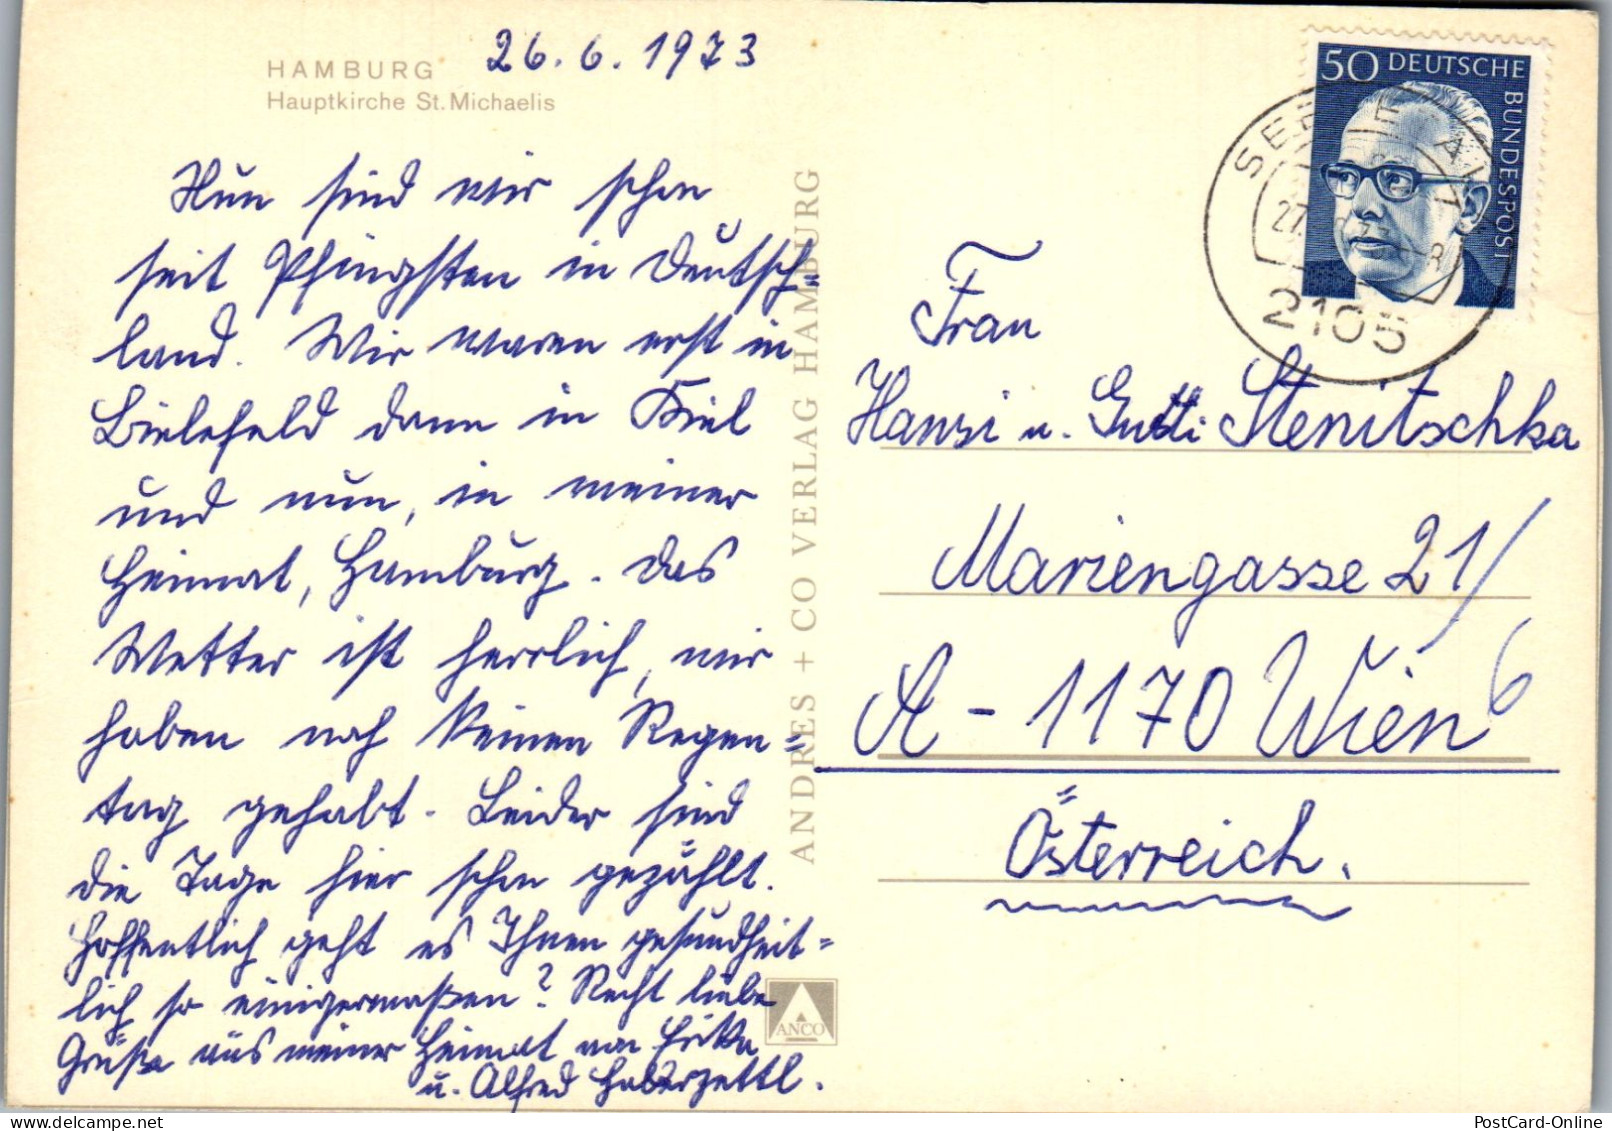 HAMBURG
Hauptkirche St. Michaelis
26.6.1973
Nun sind wir schon
seit Pfingsten in Deutsch=
land. Wir waren erst in
Bielefeld dann in Kiel
und nun, in meiner
Heimat, Hamburg. Das
Wetter ist herrlich, wir
haben noch keinen Regen=
tag gehabt. Leider sind
die Tage hier schon gezählt.
Hoffentlich geht es Ihnen gesundheit=
lich so einigermaßen? Recht liebe
Grüße aus meiner Heimat von Erika
u. Alfred Haberzettl.
ANDRES + CO VERLAG HAMBURG
ANCO
50 DEUTSCHE
BUNDESPOST
27.
2105
Frau
Hansi u. Gutti Stenitschka
Mariengasse 21/
6
A - 1170 Wien
Österreich.
PostCard-Online